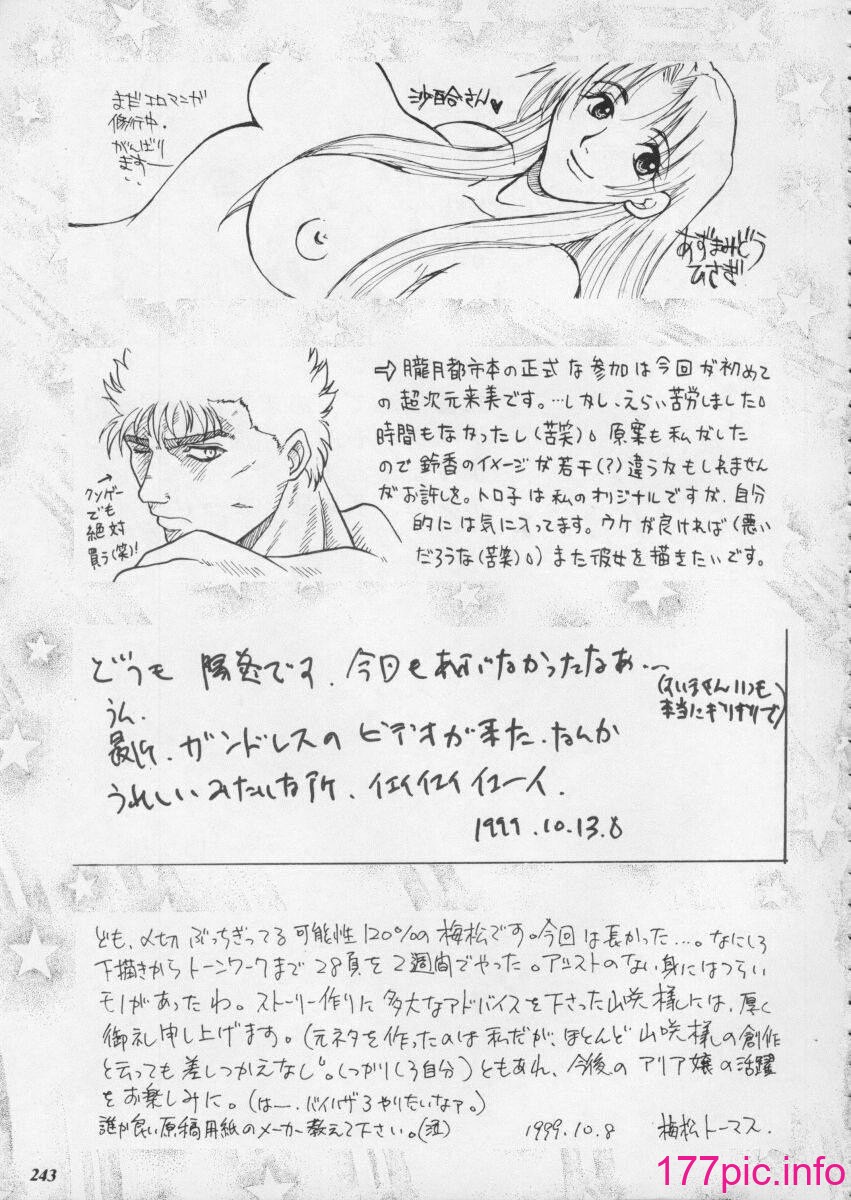 まだエロマンガ
修行中.
がんばり
ますー
沙百合さん♥
あずまみどう
ひさぎ
⇨朧月都市本の正式な参加は今回が初めて
の超次元来美です。…しかし、えらい苦労しました。
時間もなかったし(苦笑)。原案も私がした
ので鈴香のイメージが若干(?)違うかもしれません
がお許しを。トロ子は私のオリジナルですが、自分
的には気に入ってます。ウケが良ければ(悪い
だろうな(苦笑)。)また彼女を描きたいです。
→
クソゲー
でも
絶対
買う(笑)!
どうも 陽炎です.今回もあぶなかったなぁ…
(すいませんいつも
本当にギリギリで)
うん.
最近.ガンドレスのビデオが来た.なんか
うれしいみたいな所.イエイイエイイエーイ.
1999.10.13.8
ども、〆切ぶっちぎってる可能性120%の梅松です。今回は長かった…。なにしろ
下描きからトーンワークまで28頁を2週間でやった。アシストのない身にはつらい
モノがあったわ。ストーリー作りに多大なアドバイスを下さった山咲様には、厚く
御礼申し上げます。(元ネタを作ったのは私だが、ほとんど山咲様の創作
と云っても差しつかえなし。しっかりしろ自分)ともあれ、今後のアリア嬢の活躍
をお楽しみに。(はー、バイハザ3やりたいなァ。)
誰か良い原稿用紙のメーカー教えて下さい。(泣) 1999.10.8 梅松トーマス.
243
177pic.info